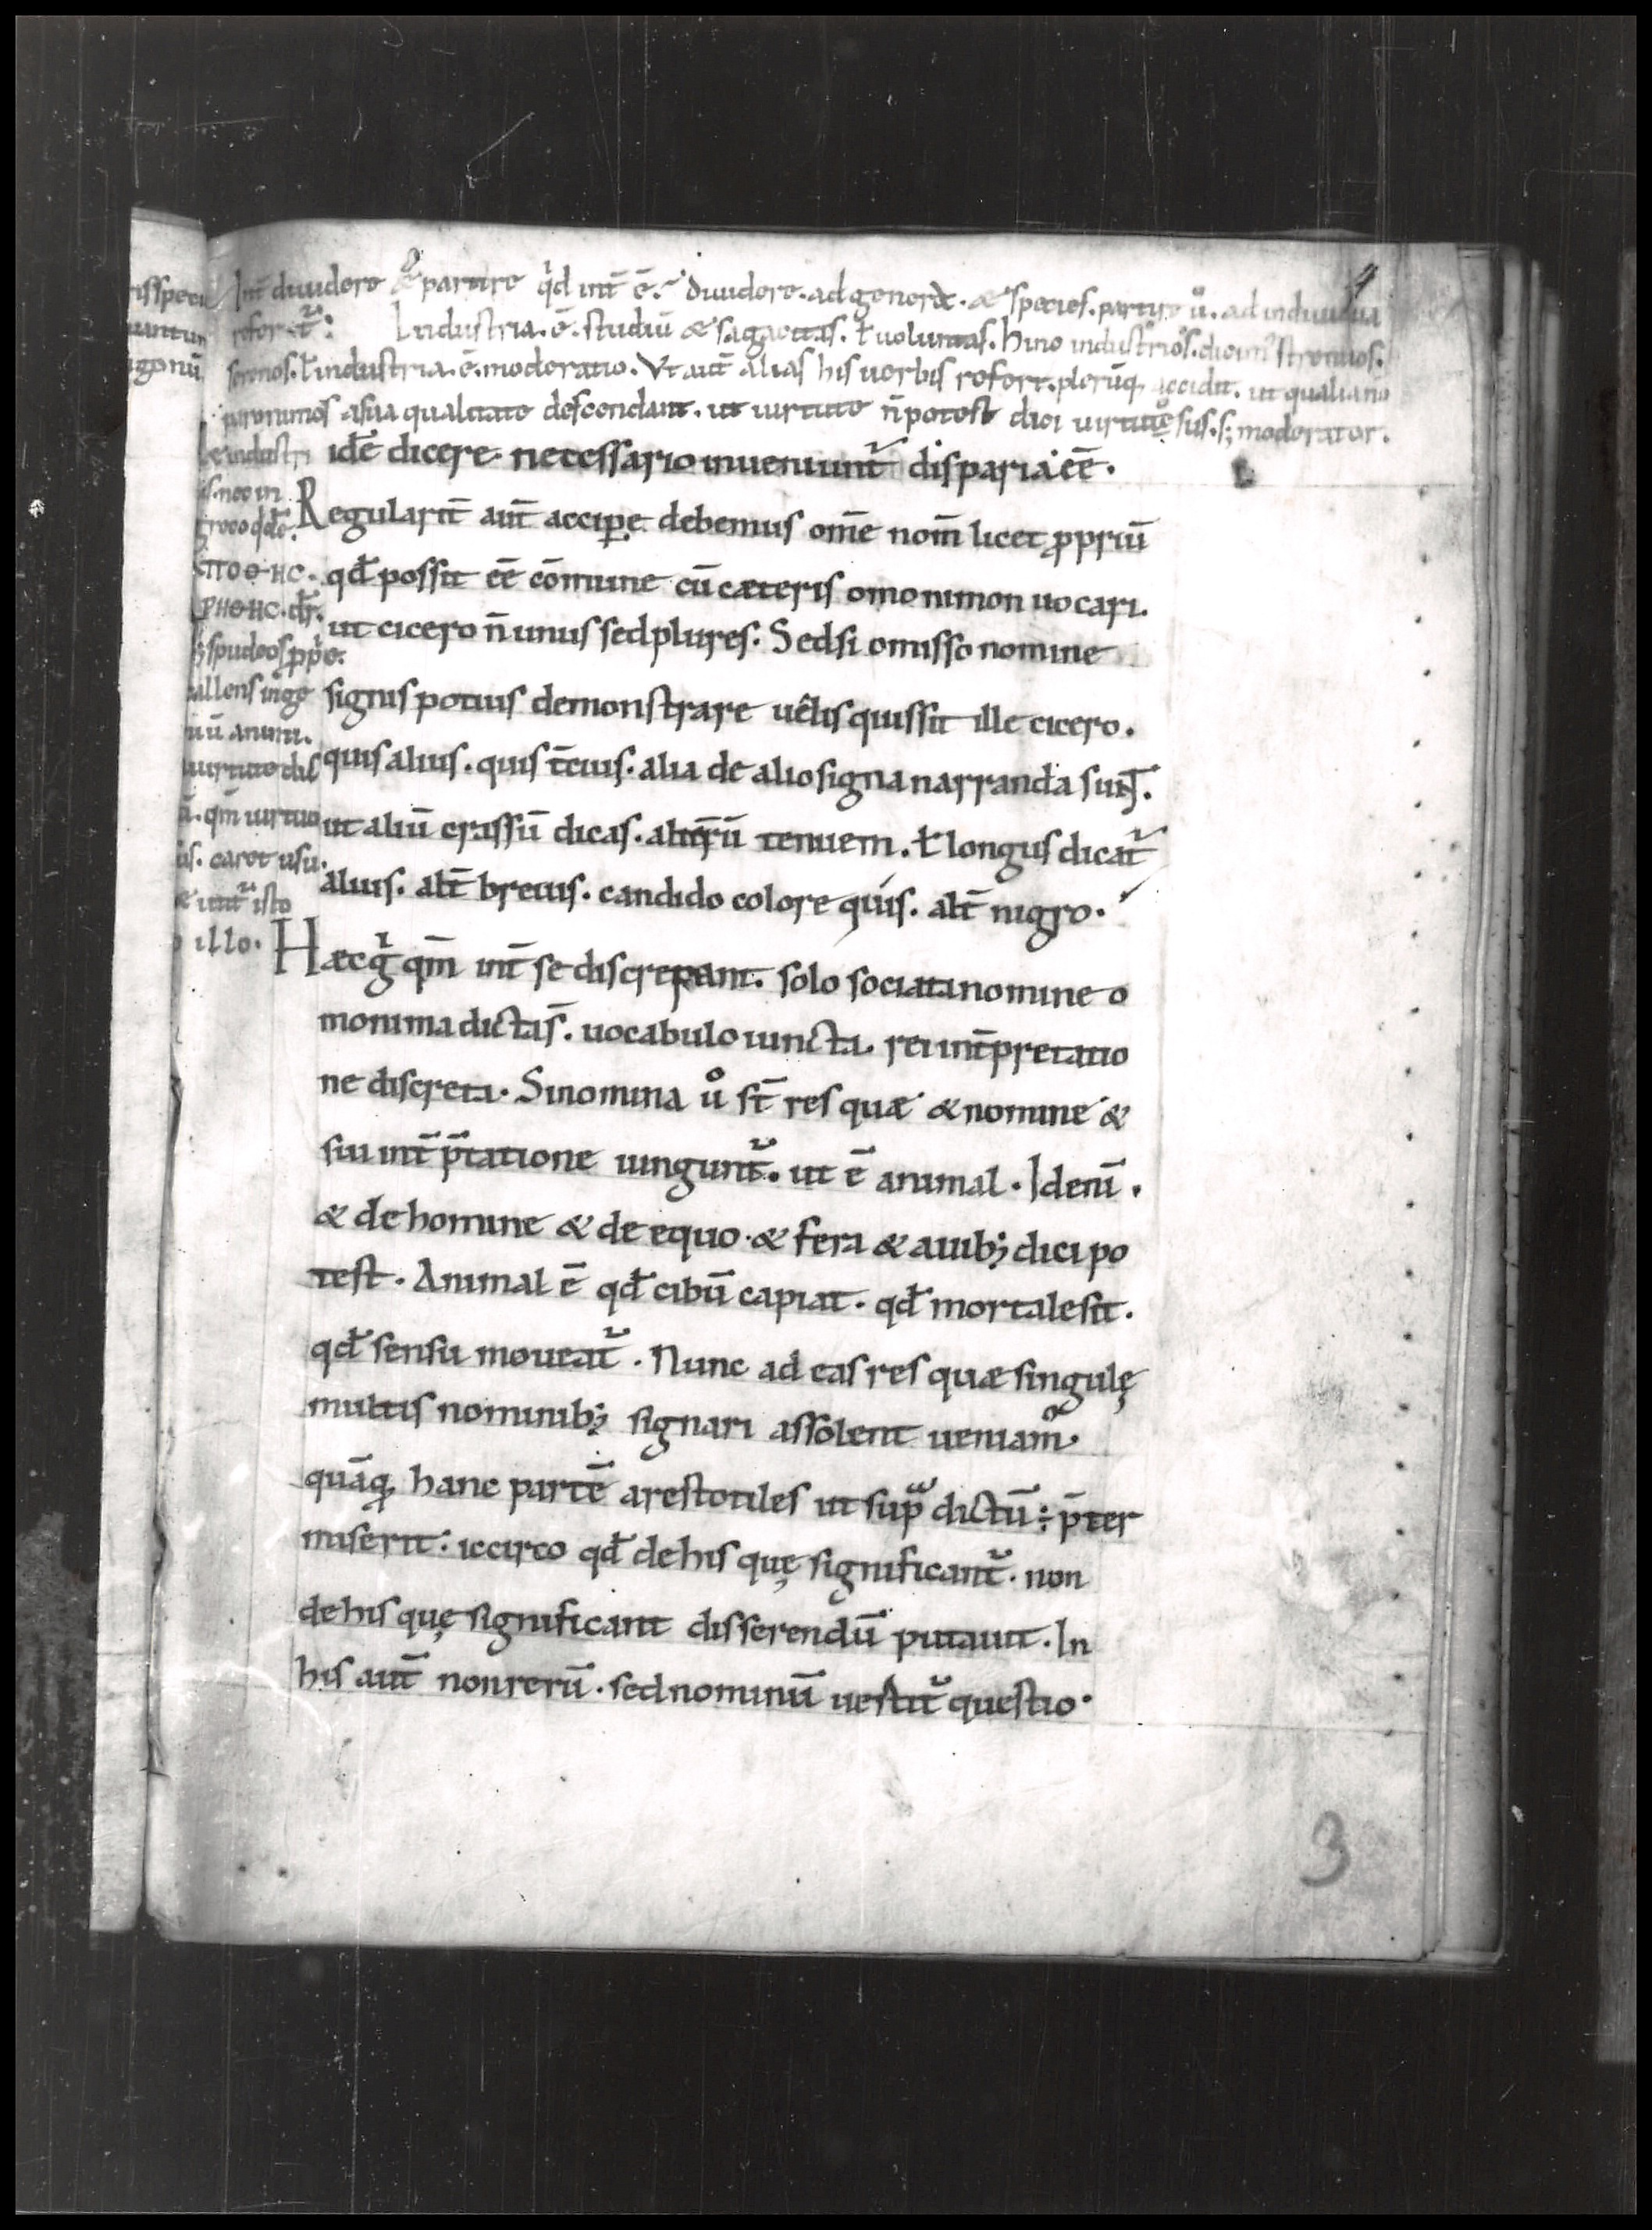 Int̄ diuidere & partire qd int̄ ē. diuidere. ad genera. & species. partire u̇. ad indiuidua
refert̄. Industria. ē. studiū & sagacitas. ł uoluntas. hinc industrios. dicim' strenuos.
serenos. ł industria. ē. moderatio. Vt aut̄ alias his uerbis refert. plerūq; accidit. ut qualia nō
paronimos a sua qualitate descendant. ut uirtute n̄ potest dici uirtuosus. s; moderator.
idē dicere necessario inueniunt̄ disparia eē.
Regularit̄ aut̄ accipe debemus om̄e nom̄ licet ppriū
qd̄ possit eē cōmune cū cæteris omonimon uocari.
ut cicero n̄ unus sed plures. Sed si omisso nomine
signis potius demonstrare uelis quis sit ille cicero.
quis alius. quis t̄cius. alia de alio signa narranda sunt.
ut aliū crassū dicas. alterū tenuem. ł longus dicat̄
alius. alt̄ breuis. candido colore quis. alt̄ nigro.
Hæc g qm̄ int̄ se discrepant. solo sociata nomine o
monima dicta s̄. uocabulo iuncta. rei int̄pretatio
ne discreta. Sinomina u̇ st̄ res quæ & nomine &
sui int̄ p̄tatione iungunt̄. ut ē animal. Id enī.
& de homine & de equo. & fera & auib; dici po
test. Animal ē qd̄ cibū capiat. qd̄ mortale sit.
qd̄ sensu moueat̄. Nunc ad eas res quæ singulę
multis nominib; signari assolent ueniam'.
quāq; hanc partē arestotiles ut sup dictū ÷ p̄ter
miserit: iccirco qd̄ de his quę significant̄. non
de his quę significant disserendū putauit. In
his aut̄ non rerū. sed nominū uestit̄ questio.
be industri
is. nec in
greco qdē.
CΠΟΘΗC.
ΡΗΘΗC. dr̄.
s; spudeos pp̄e.
callens inge
niū animi.
ū. qm̄ uirtuo
us. caret usu.
illo.
4
3